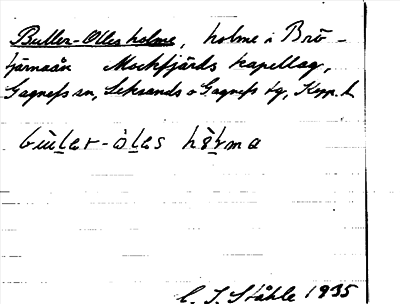 Buller-Olles holme, holme i Brö-
tjärnaån Mockfjärds kapellag,
Gagnefs sn, Leksands o Gagnefs tg, Kopp. l.
bul̲er-ol̲es hol̲ma
C. I. Ståhle 1935